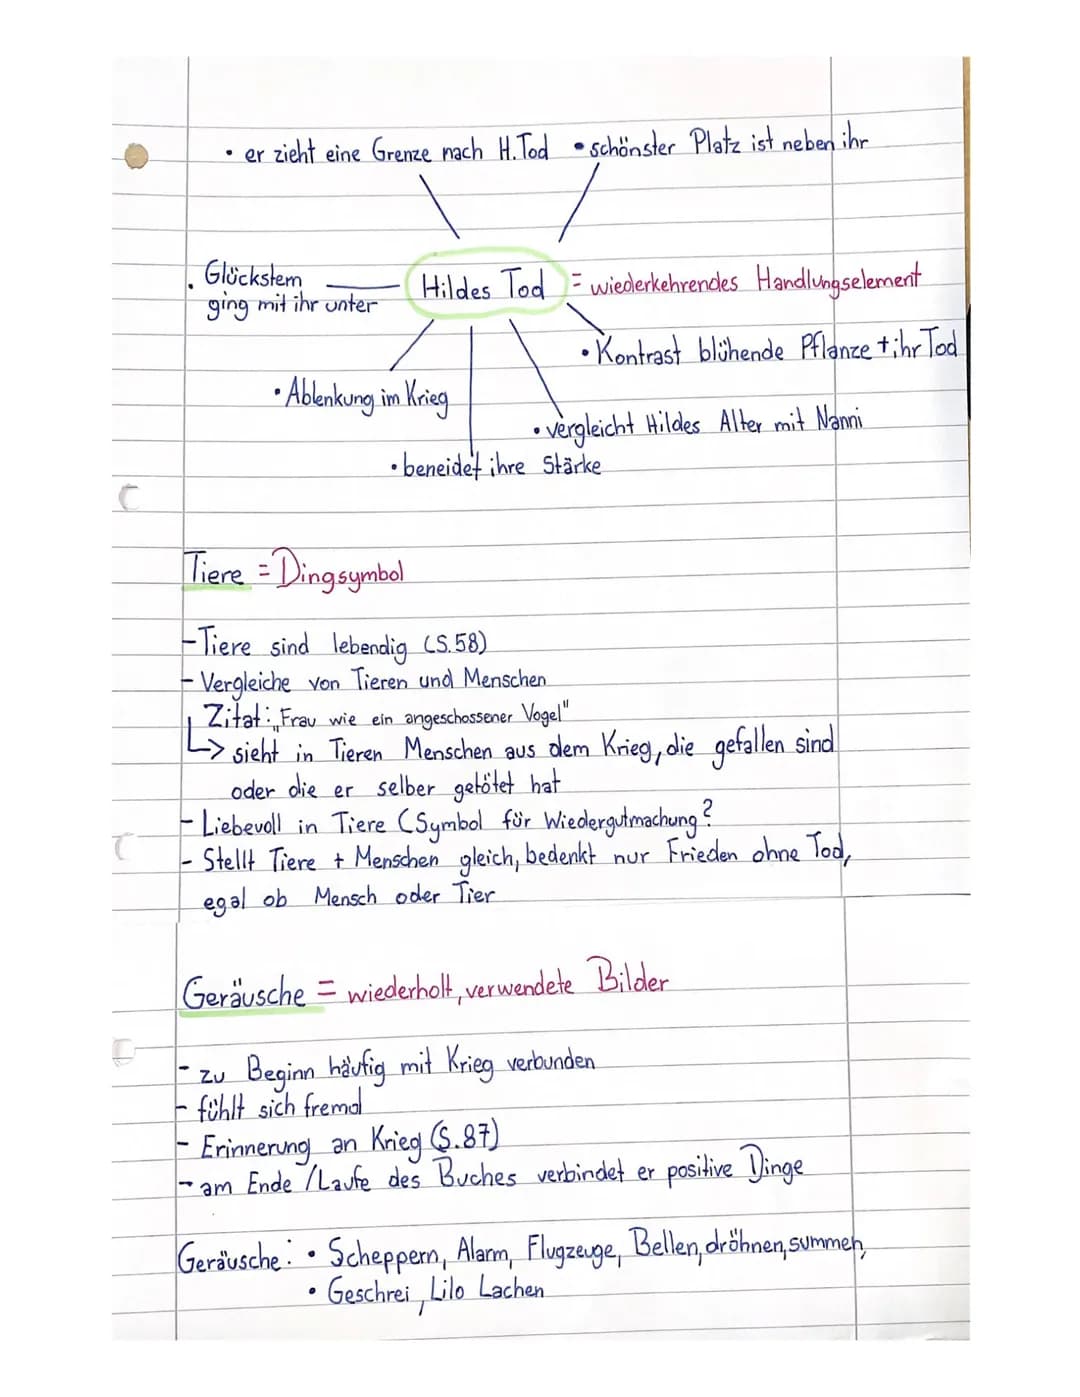 • er zieht eine Grenze nach H.Tod • schönster Platz ist neben ihr
• Glückstern
ging mit ihr unter
Hildes Tod = wiederkehrendes Handlungselement
• Kontrast blühende Pflanze + ihr Tod
• Ablenkung im Krieg
• vergleicht Hildes Alter mit Nanni
• beneidet ihre Stärke
Tiere = Dingsymbol
- Tiere sind lebendig (S.58)
- Vergleiche von Tieren und Menschen
Zitat: „Frau wie ein angeschossener Vogel"
↳ sieht in Tieren Menschen aus dem Krieg, die gefallen sind
oder die er selber getötet hat
- Liebevoll in Tiere (Symbol für Wiedergutmachung?
- Stellt Tiere + Menschen gleich, bedenkt nur Frieden ohne Tod,
egal ob Mensch oder Tier
Geräusche = wiederholt, verwendete Bilder
- zu Beginn häufig mit Krieg verbunden
- fühlt sich fremd
- Erinnerung an Krieg (S.87)
- am Ende /Laufe des Buches verbindet er positive Dinge
Geräusche: • Scheppern, Alarm, Flugzeuge, Bellen, dröhnen, summen,
• Geschrei, Lilo Lachen